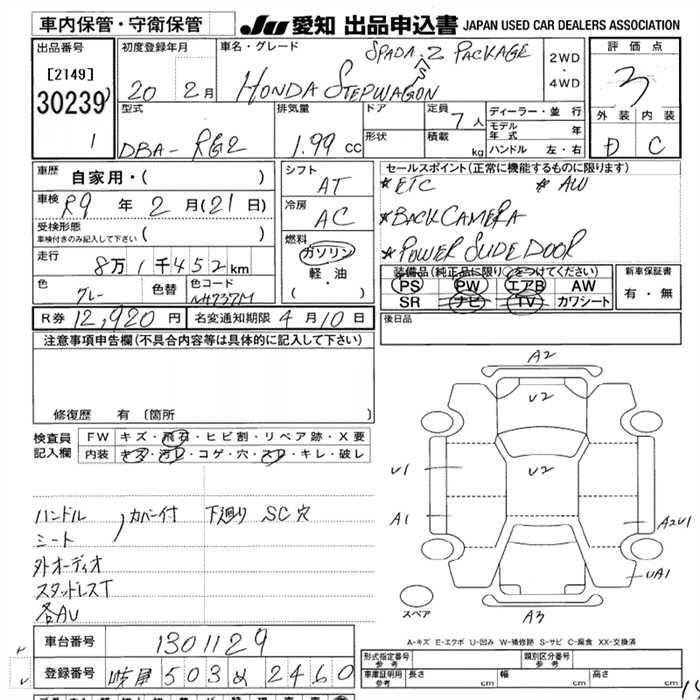 車内保管・守衛保管
JU 愛知 出品申込書 JAPAN USED CAR DEALERS ASSOCIATION
出品番号 初度登録年月 車名・グレード SPADA Z PACKAGE 2WD・4WD 評価点
[2149] 20年 2月 HONDA STEPWAGON 3
30239 外装 内装
1 D C
型式 排気量 ドア 定員 ディーラー・並行
DBA-RG2 1.99cc 7人 モデル年式 年
形状 積載 kg ハンドル 左・右
車歴 自家用・( ) シフト AT セールスポイント(正常に機能するものに限ります)
車検 R9年 2月(21日) 冷房 AC *ETC *AW
受検形態 ( ) *BACK CAMERA
車検付きのみ記入して下さい
走行 8万1千452km 燃料 ガソリン・軽・油 ( ) *POWER SLIDE DOOR
色 グレー 色替 色コード NH737M
装備品(純正品に限り○をつけてください) 新車保証書
PS PW エアB AW 有・無
SR ナビ TV カワシート
R券 12,920円 名変通知期限 4月10日 後日品
注意事項申告欄(不具合内容等は具体的に記入して下さい)
修復歴 有 〔箇所 〕
検査員記入欄 FW キズ・飛石・ヒビ割・リペア跡・X要
内装 キズ・汚レ・コゲ・穴・スレ・キレ・破レ
ハンドル カバー付 下廻り SC穴
シート
外オーディオ
スタッドレスT
各AU
A2
U2
U2
U1
A1
A2U1
UA1
スペア
A3
A-キズ E-エクボ U-凹み W-補修跡 S-サビ C-腐食 XX-交換済
車台番号 1301129
登録番号 岐阜 503 め 2460
形式指定番号 参考 類別区分番号 参考
車庫証明用 参考 長さ cm 幅 cm 高さ cm